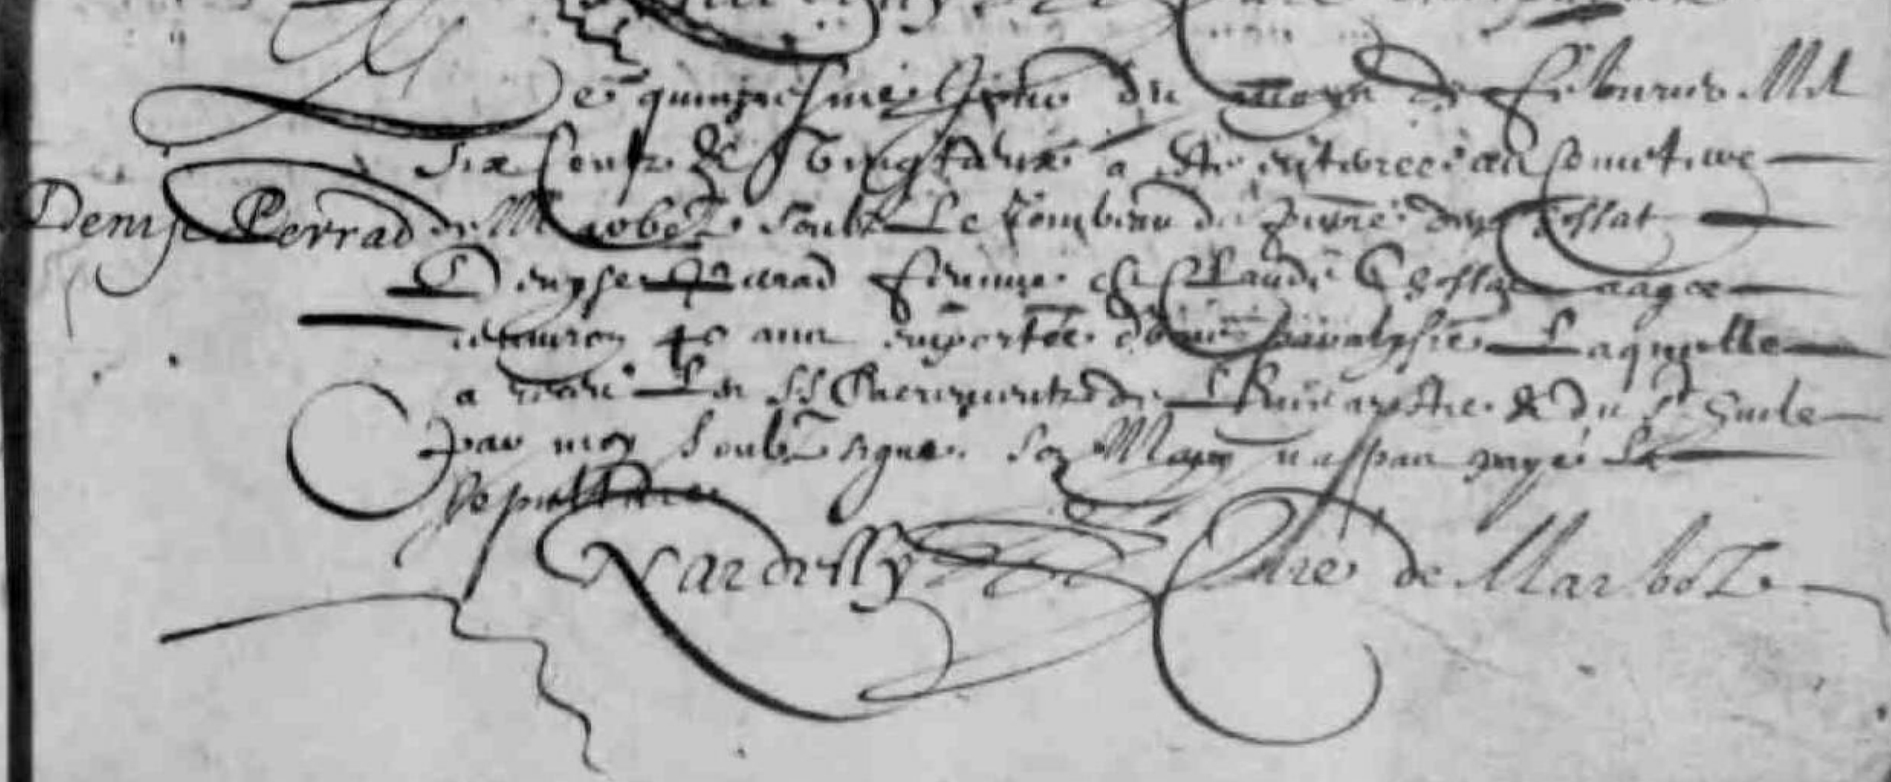 Le quinziesme Jour du moys de febvrier Mil
six centz & vingt deux a este enterree au cometiere
Denyse Perrad
de Marboz soubz le tombeau de pierre des Chossat
Denyse Perrad femme de Claude Chossat aagee
denviron 40 ans emportee d'une paralysie Laquelle
a receu les SS Sacrementz de L'Eucaristie & du st huile
par moy soubz signe son Mary n'a pas paye la
sepulture
Nardilly Cure de Marboz